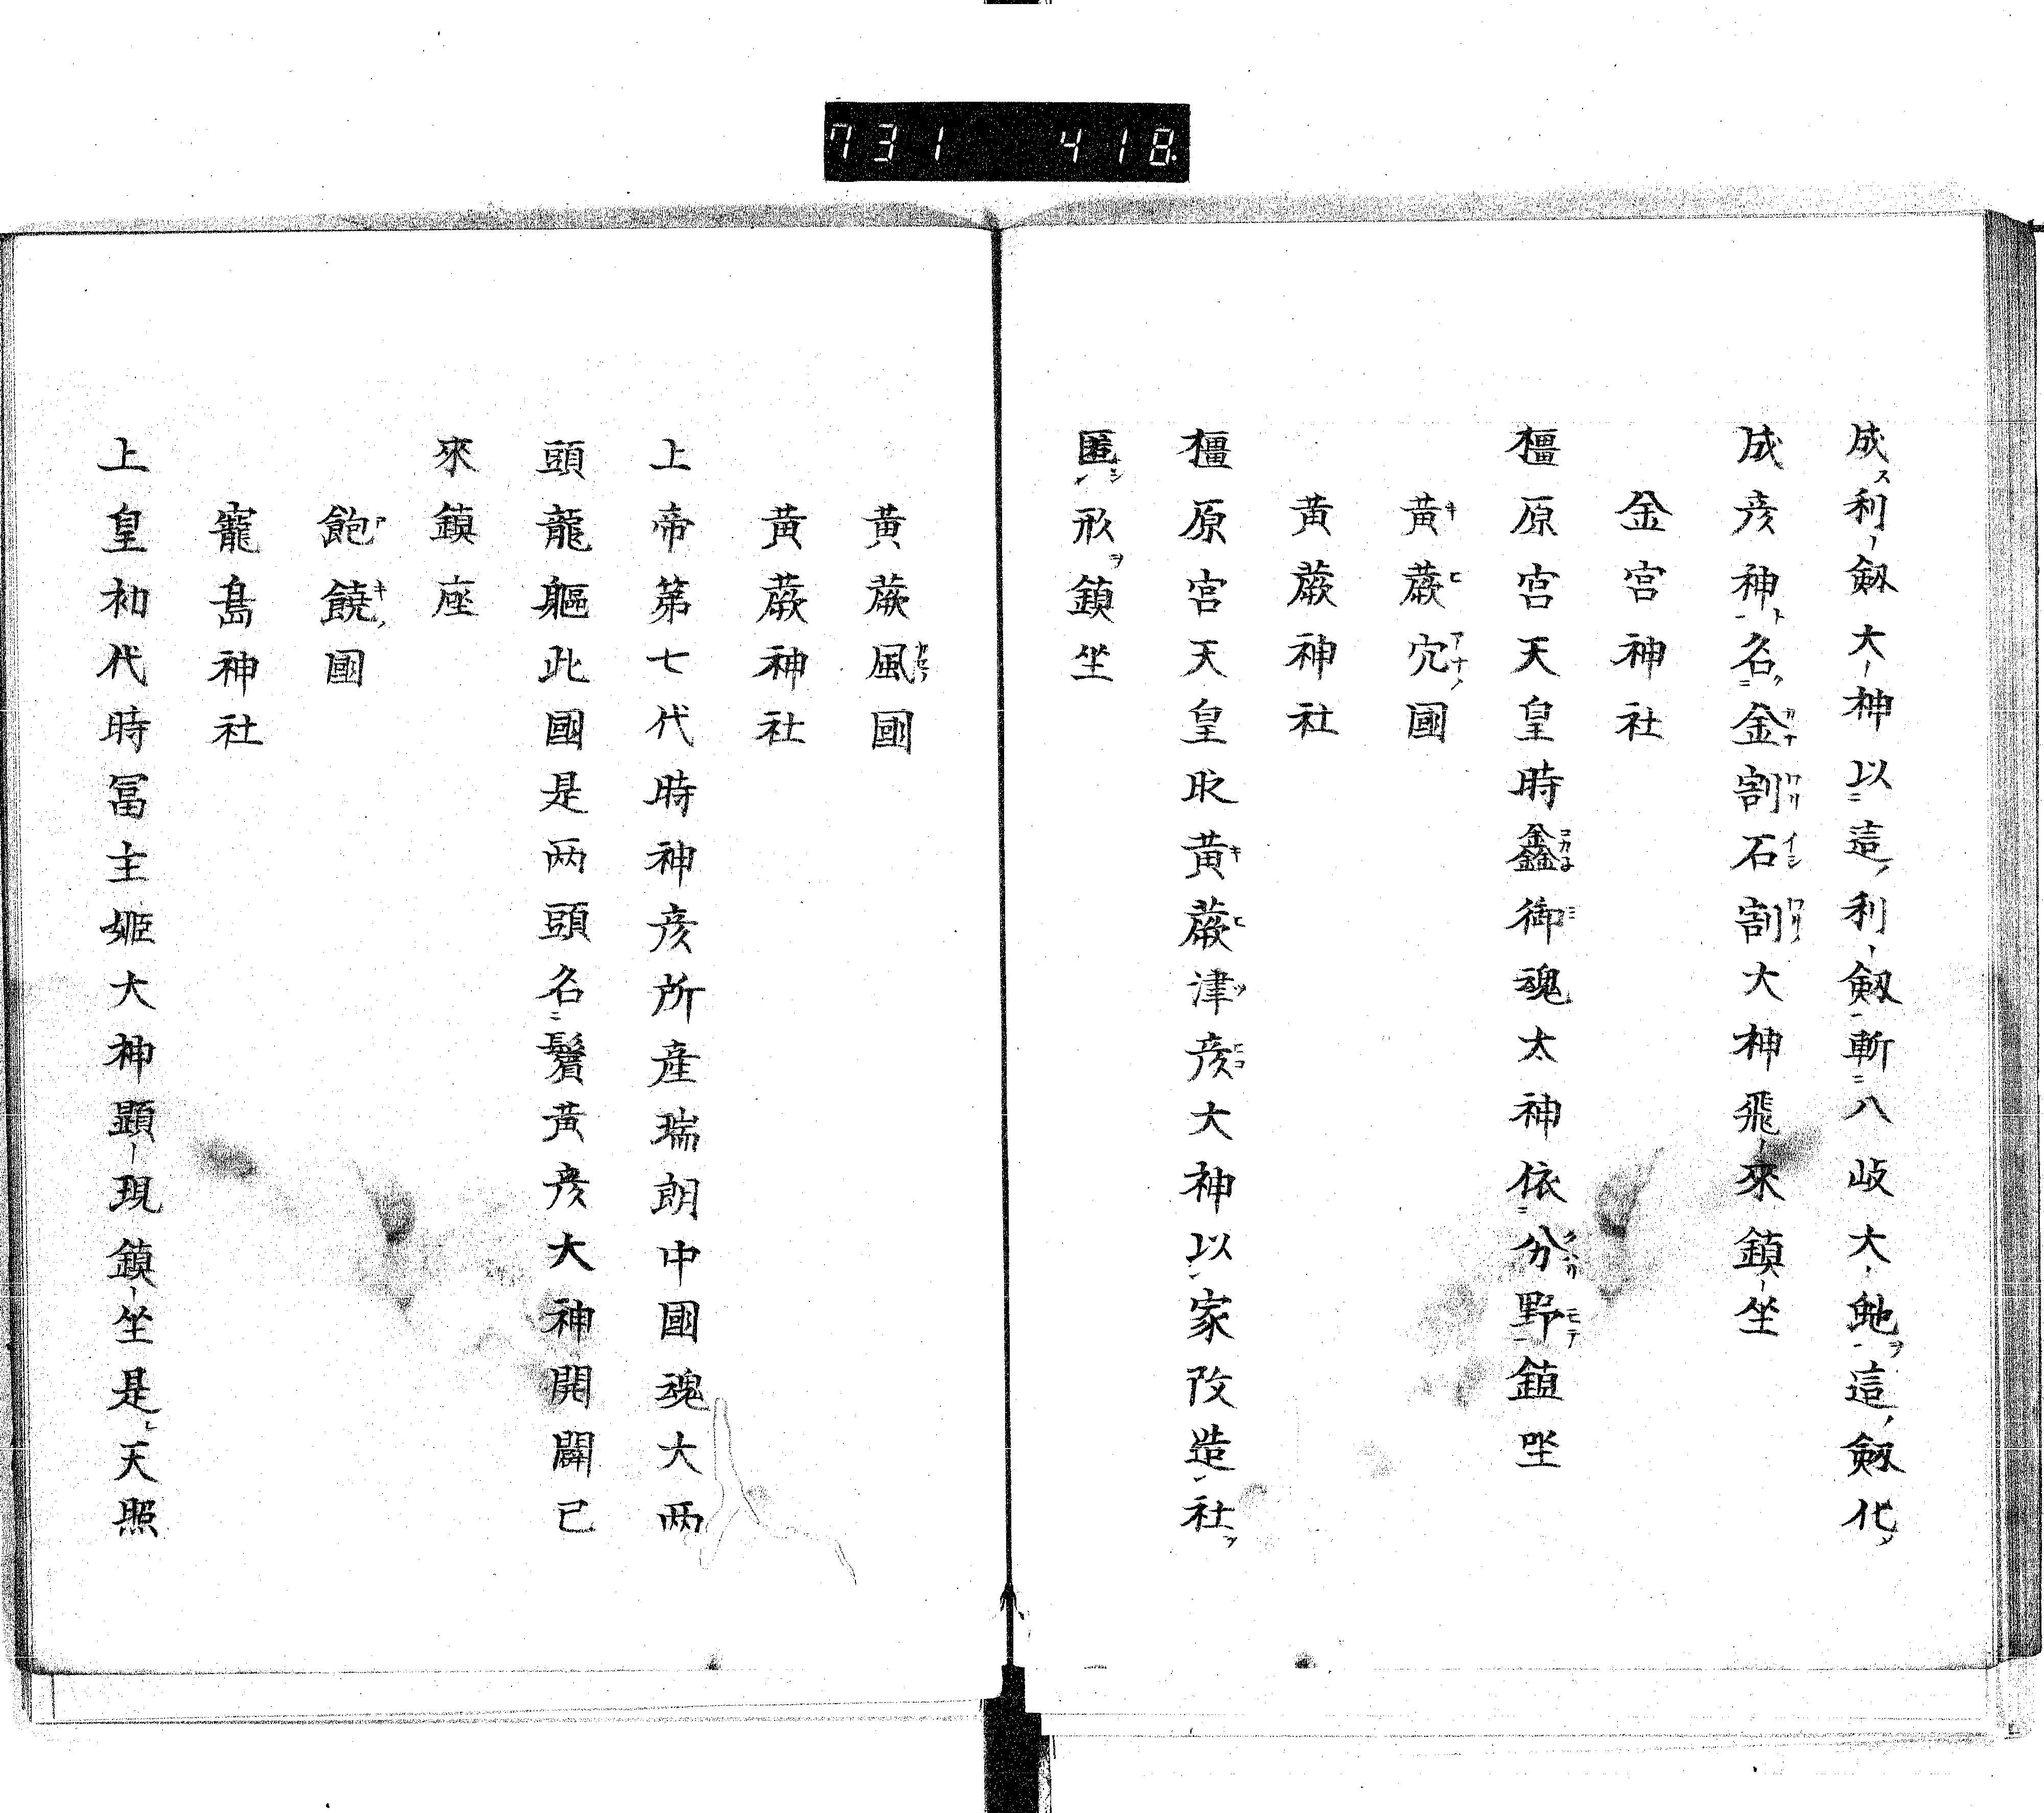 731 418.
成利劔大神以這利劔斬八岐大虵這劔化
成彦神名金割石割大神飛來鎮坐
金宮神社
橿原宮天皇時鑫御魂太神依分野鎮坐
黄蕨穴國
黄蕨神社
橿原宮天皇政黄蕨津彦大神以家改造社
匿形鎮坐
黄蕨風國
黄蕨神社
上帝第七代時神彦所産瑞朗中國魂大两
頭龍軀此國是两頭名鬢黄彦大神開闢已
來鎮座
飽饒國
寵島神社
上皇初代時冨主姬大神顕現鎮坐是天照